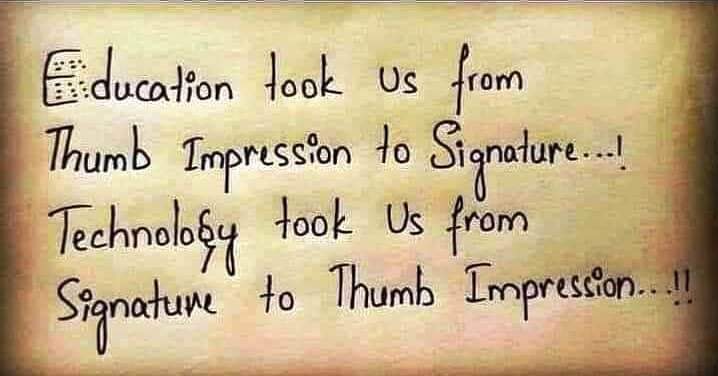 Education took us from
Thumb Impression to Signature...!
Technology took Us from
Signature to Thumb Impression...!!